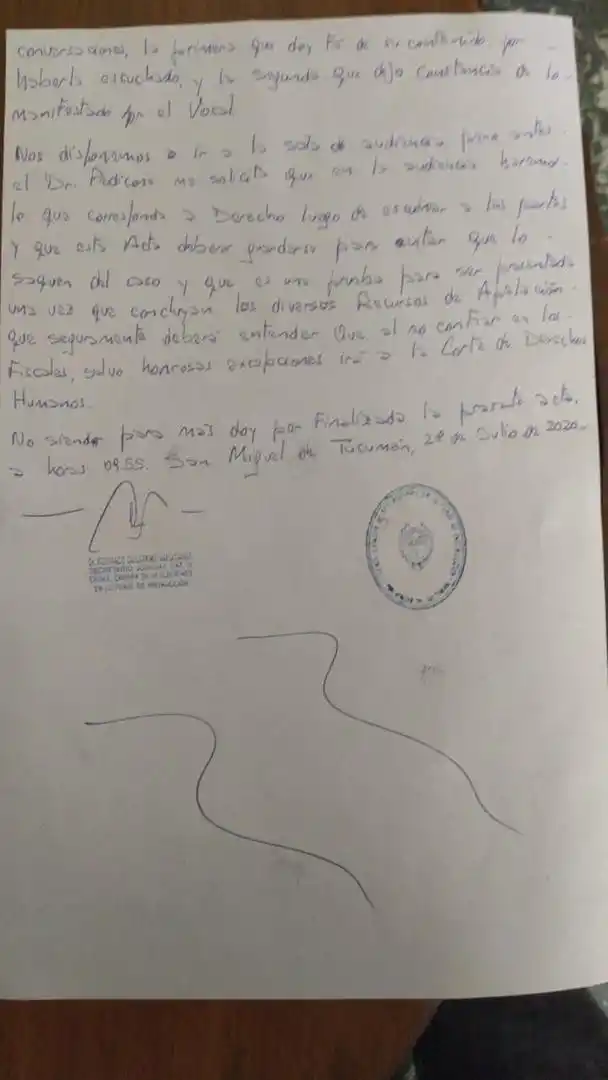 conversaciones, la primera que doy Fé de su contenido por
haberla escuchado, y la segunda que dejo constancia de lo
manifestado por el Vocal
Nos disponemos a ir a la sala de audiencia pero antes
el Dr. Pedicone me solicita que en la audiencia haremos
lo que corresponda a Derecho luego de escuchar a las partes
y que esta Acta deberá guardarse para evitar que lo
saquen del caso y que es una prueba para ser presentada
una vez que concluyan los diversos Recursos de Apelación
que seguramente deberá entender Que al no confiar en los
Fiscales, salvo honrosas excepciones irá a la Corte de Derechos
Humanos.
No siendo para más doy por Finalizada la presente acta,
a horas 09.55. San Miguel de Tucumán, de Julio de 2020.